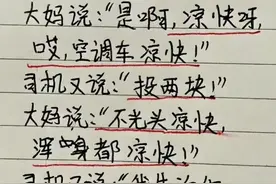 大妈说:“是啊,凉快呀,
哎,空调车凉快!”
司机又说:“投两块!”
大妈说:“不光头凉快,
浑身都凉快!”